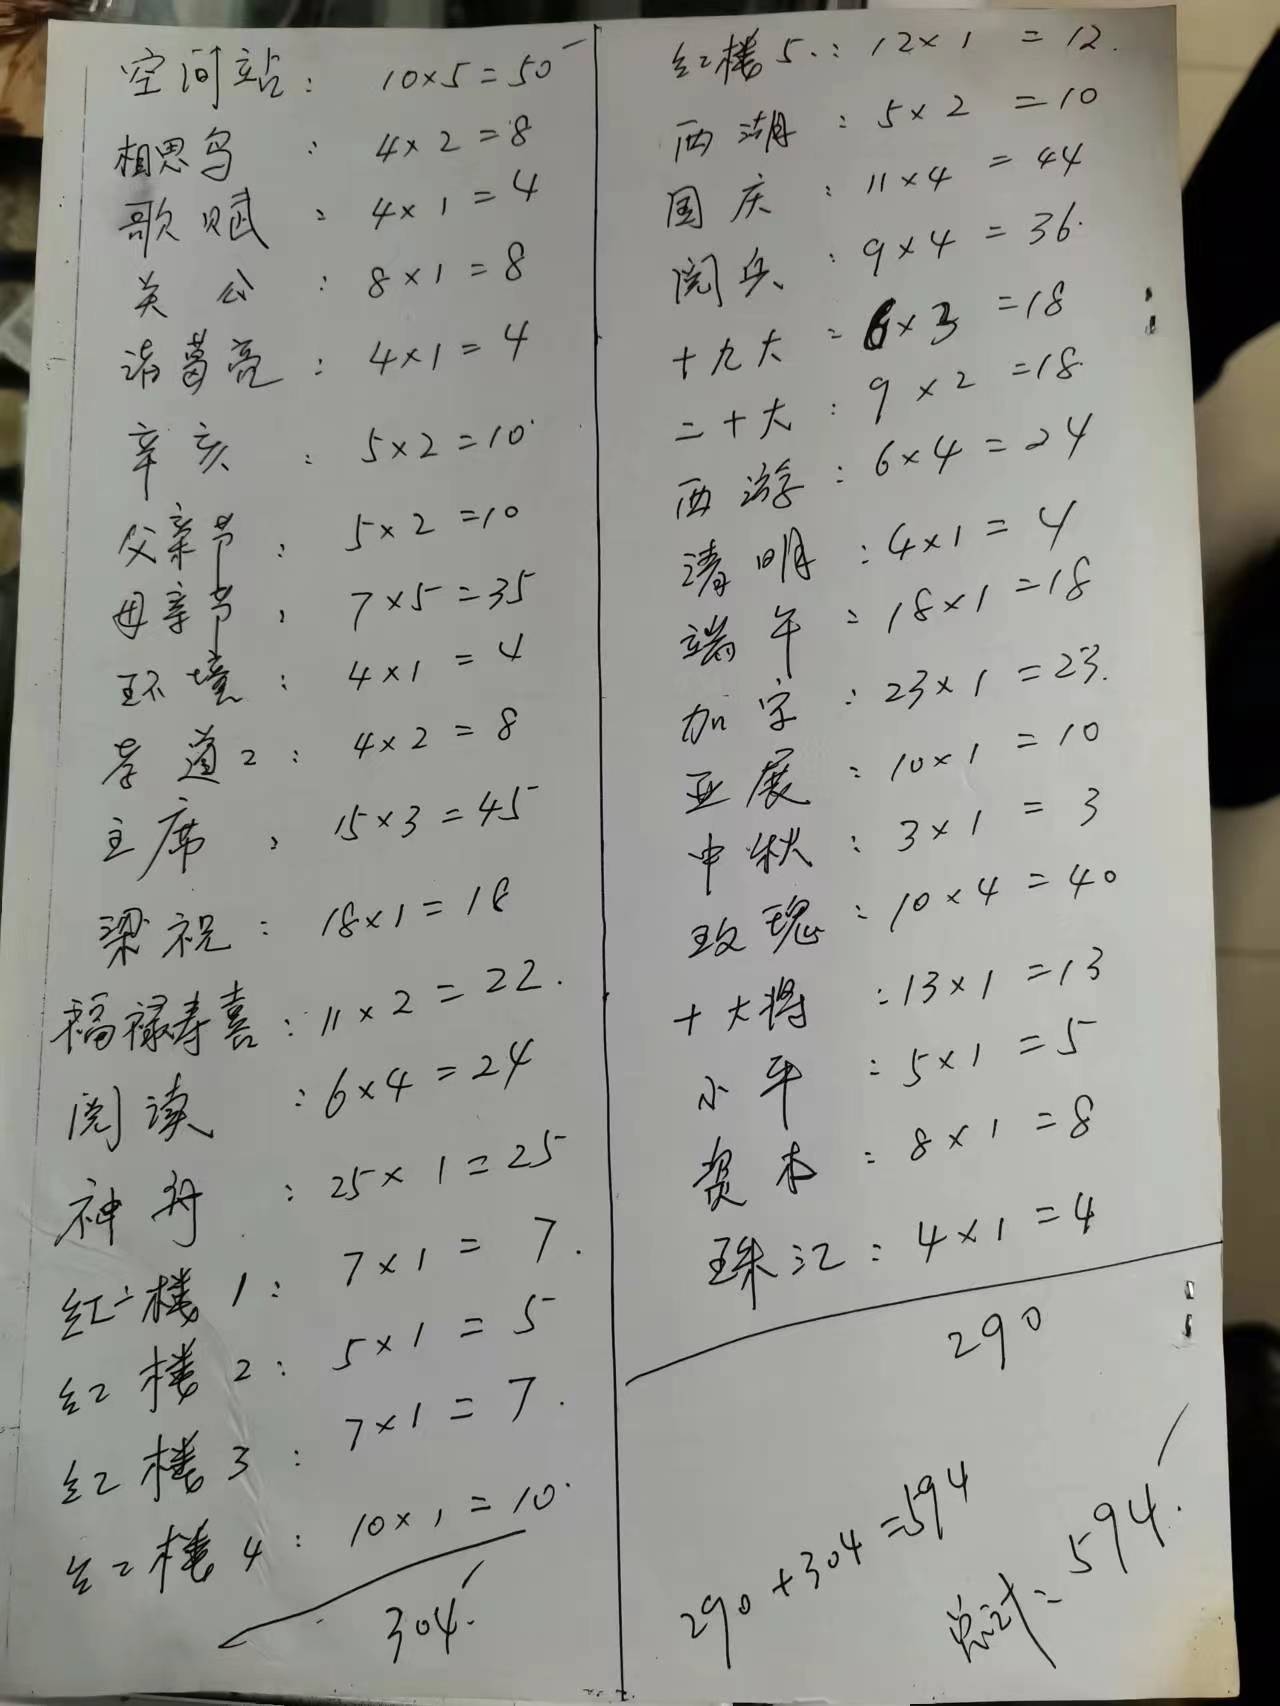 空间站： 10×5=50
相思鸟： 4×2=8
歌赋： 4×1=4
关公： 8×1=8
诸葛亮： 4×1=4
辛亥： 5×2=10
父亲节： 5×2=10
母亲节： 7×5=35
环境： 4×1=4
孝道2： 4×2=8
主席： 15×3=45
梁祝： 18×1=18
福禄寿喜： 11×2=22.
阅读： 6×4=24
神舟： 25×1=25
红楼1： 7×1=7.
红楼2： 5×1=5
红楼3： 7×1=7.
红楼4： 10×1=10.
304.
红楼5.： 12×1=12.
西湖： 5×2=10
国庆： 11×4=44
阅兵： 9×4=36.
十九大： 6×3=18
二十大： 9×2=18
西游： 6×4=24
清明： 4×1=4
端午： 18×1=18
加字： 23×1=23.
亚展： 10×1=10
中秋： 3×1=3
玫瑰： 10×4=40
十大将： 13×1=13
小平： 5×1=5
资本： 8×1=8
珠江： 4×1=4
290
290+304=594
总计=594.